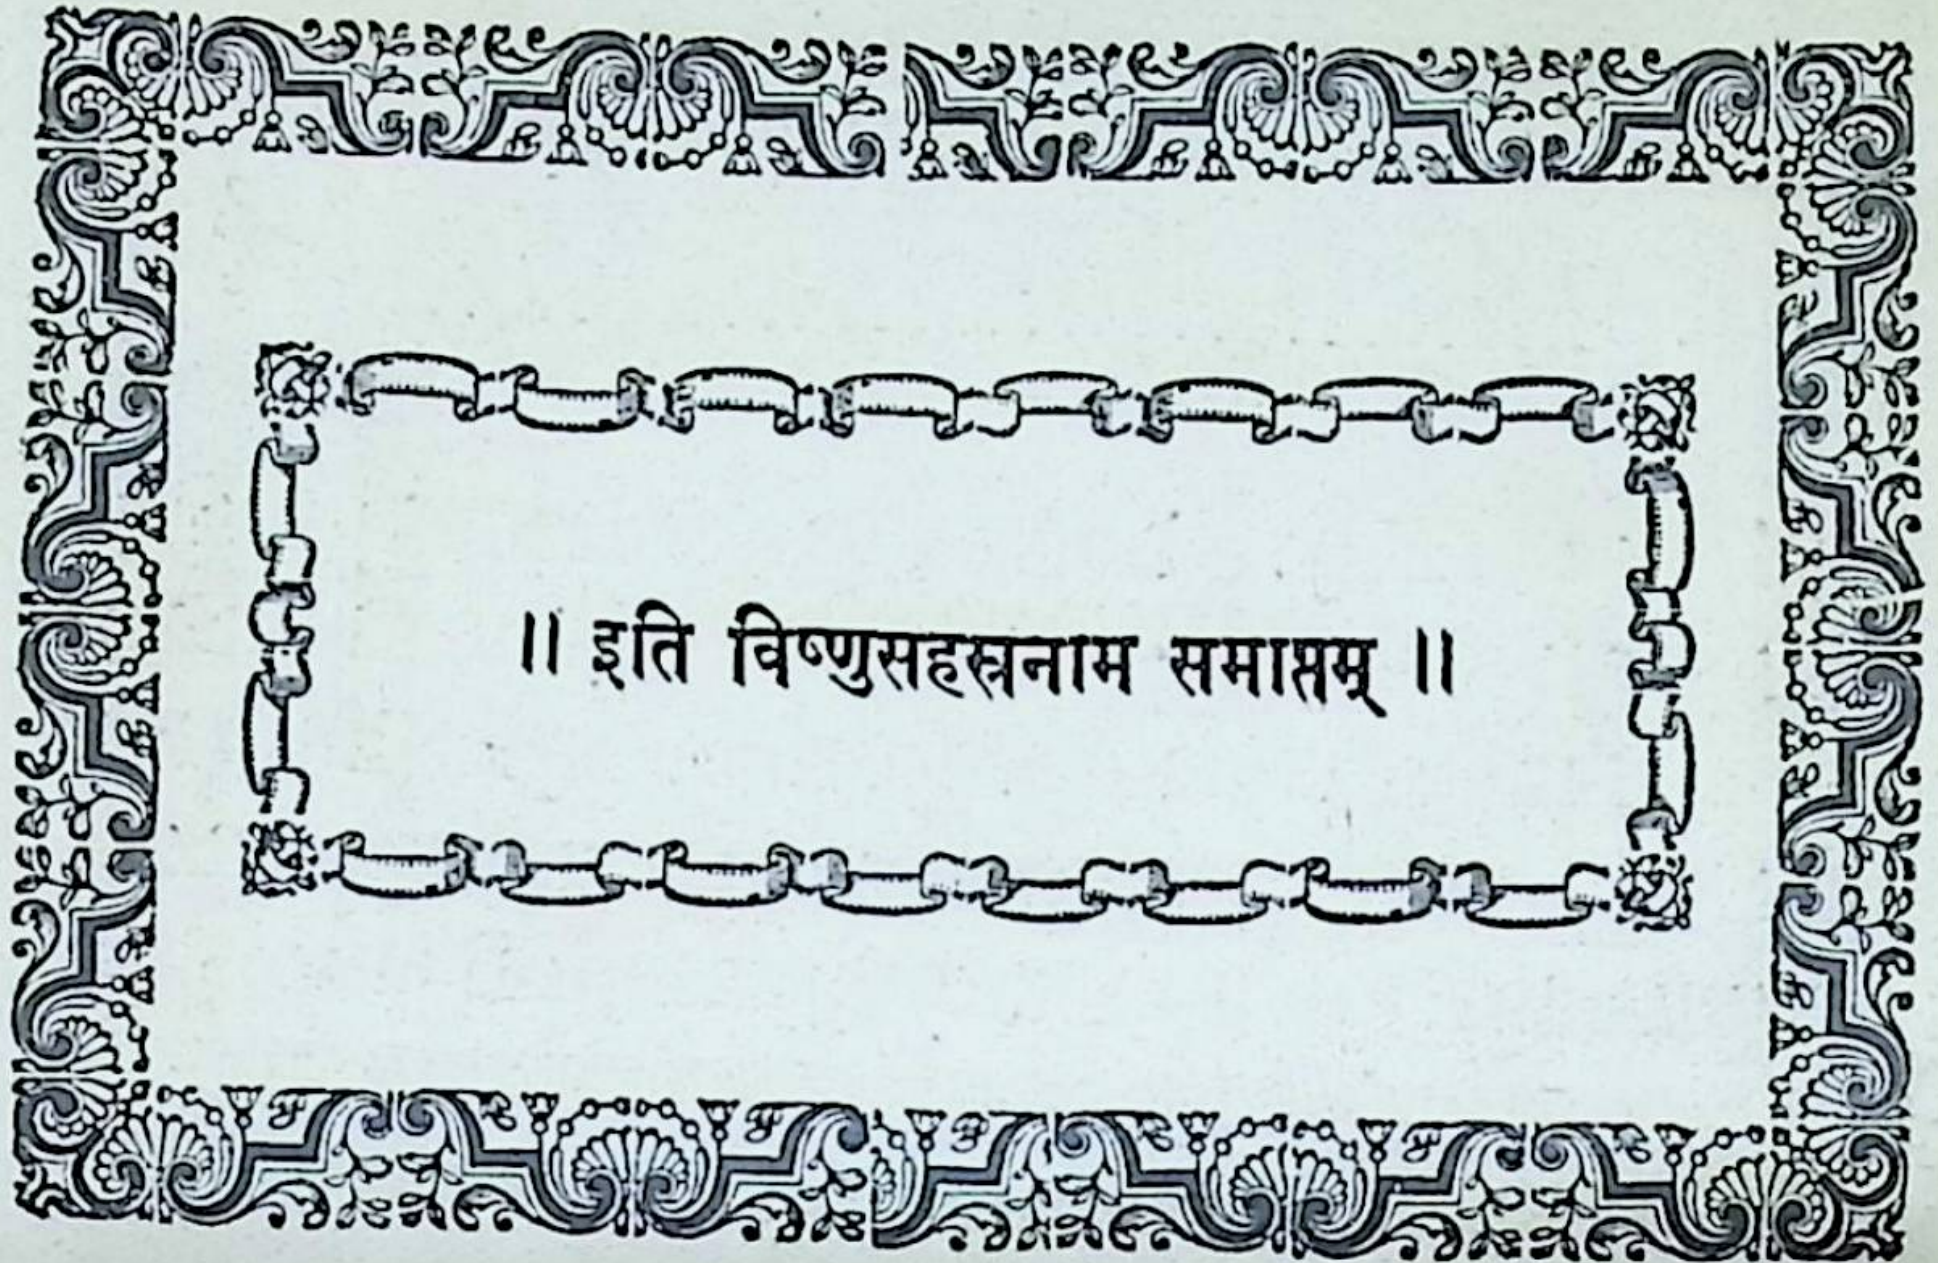 ॥ इति विष्णुसहस्रनाम समाप्तम् ॥